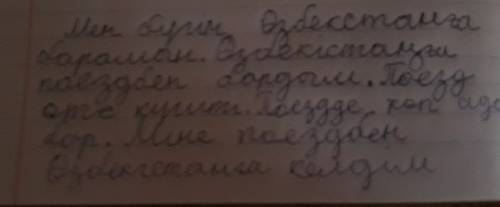 Мен бугин Өзбекстанга
бараман. Өзбекстанга
поездбен бардым. Поезд
өте кушти. Поездде көп ада
бар. Мине поездбен
Өзбекстанга келдим